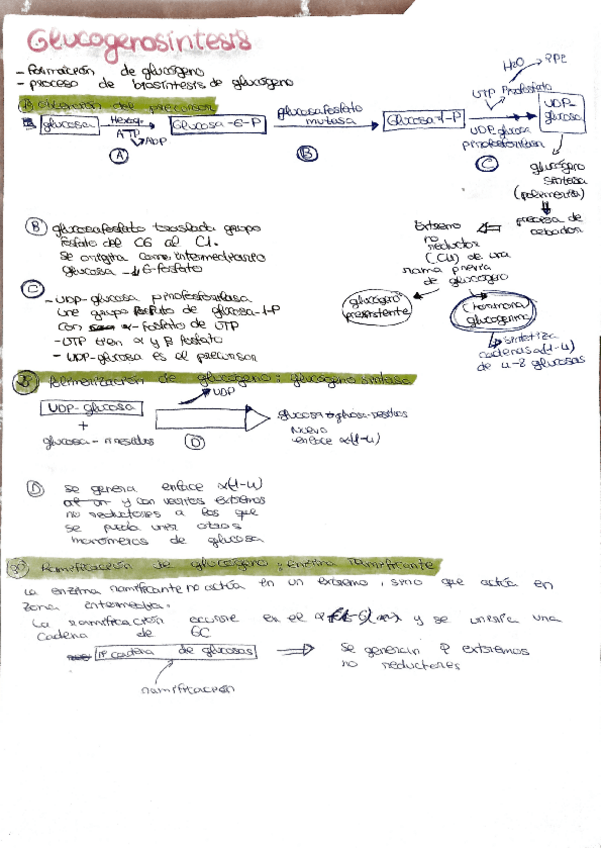 Glucogenosíntesis
- formación de glucógeno
- proceso de biosíntesis de glucógeno
1) Obtención del precursor
glucosa Hexoq. ATP ADP Glucosa-6-P glucosafosfato mutasa Glucosa-1-P UTP Pirofosfato H2O 2Pi UDP-glucosa pirofosforilasa UDP-glucosa
A B C
glucógeno
sintasa
(polimeriza)
precisa de
cebador
Extremo
no
reductor
(C4) de una
rama previa
de glucógeno
glucógeno
preexistente
glucogenina
sintetiza
cadenas α(1-4)
de 4-8 glucosas
B glucosafosfato traslada grupo
fosfato del C6 al C1.
Se origina como intermediario
glucosa -1,6-fosfato
C
- UDP-glucosa pirofosforilasa
une grupo fosfato de glucosa-1-P
con α-fosfato de UTP
- UTP tien α y β fosfato
- UDP-glucosa es el precursor
2) Polimerización de glucógeno: glucógeno sintasa
UDP-glucosa
+
glucosa-n residuos
UDP
D
nuevo
enlace α(1-4)
D se genera enlace α(1-4)
y con varios extremos
no reductores a los que
se puede unir otros
monómeros de glucosa
3) Ramificación de glucógeno: Enzima ramificante
La enzima ramificante no actúa en un extremo, sino que actúa en
zona intermedia.
La ramificación ocurre en el y se uniría una
cadena de 6C
cadena de glucosas
se generan extremos
no reductores
ramificación